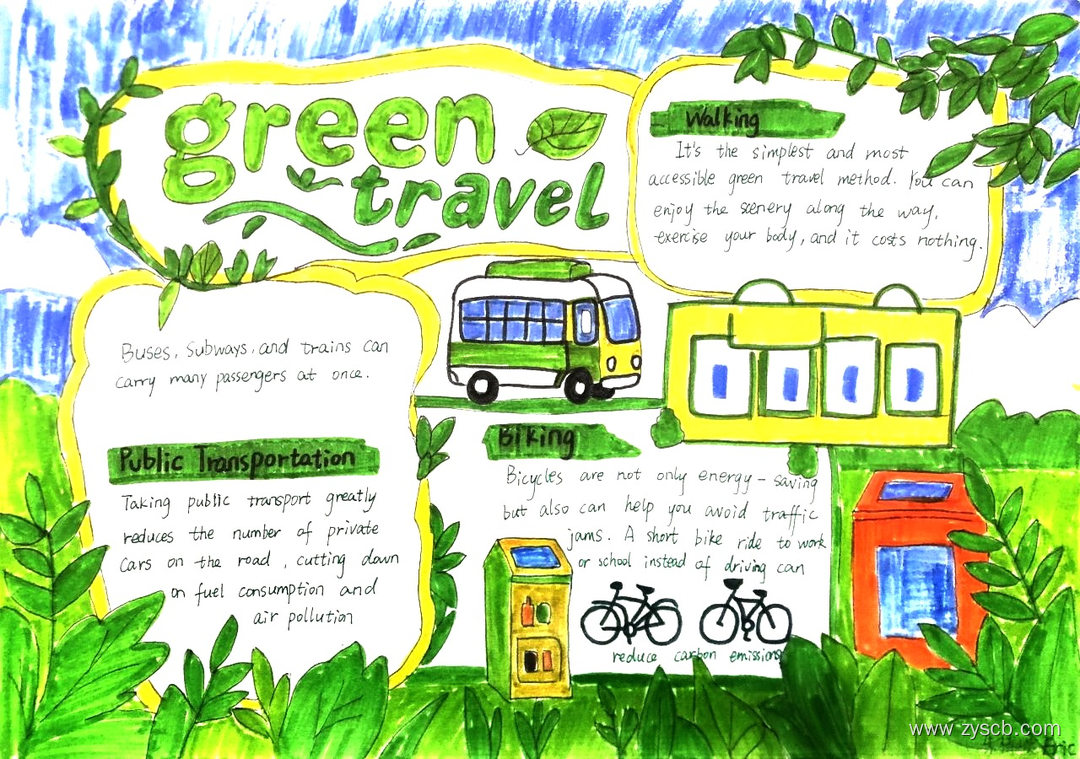 green
travel
Walking
It's the simplest and most
accessible green travel method. You can
enjoy the scenery along the way,
exercise your body, and it costs nothing.
Buses, Subways, and trains can
carry many passengers at once.
Public Transportation
Taking public transport greatly
reduces the number of private
cars on the road, cutting down
on fuel consumption and
air pollution
Biking
Bicycles are not only energy-saving
but also can help you avoid traffic
jams. A short bike ride to work
or school instead of driving can
reduce carbon emissions
www.zyscb.com